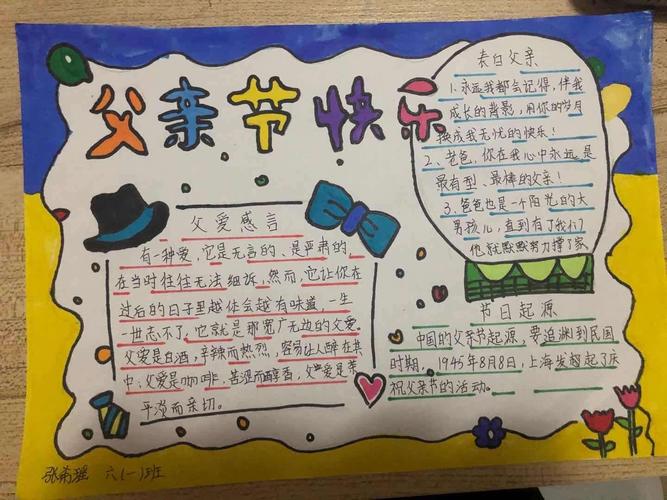 父亲节快乐
表白父亲
1.永远我都会记得,伴我
成长的背影,用你的岁月
换成我无忧的快乐!
2、老爸,你在我心中永远是
最有型、最棒的父亲!
3.爸爸也是一个阳光的大
男孩儿,直到有了我们
他就默默努力撑了家
父爱感言
有一种爱,它是无言的、是严肃的,
在当时往往无法细诉,然而,它让你在
过后的日子里越体会越有味道,一生
一世忘不了,它就是那宽广无边的父爱。
父爱是白酒,辛辣而热烈,容易让人醉在其
中、父爱是咖啡,苦涩而醇香,父爱是茶
平淡而亲切。
节日起源
中国的父亲节起源,要追溯到民国
时期,1945年8月8日,上海发起了庆
祝父亲节的活动。
六(一)班